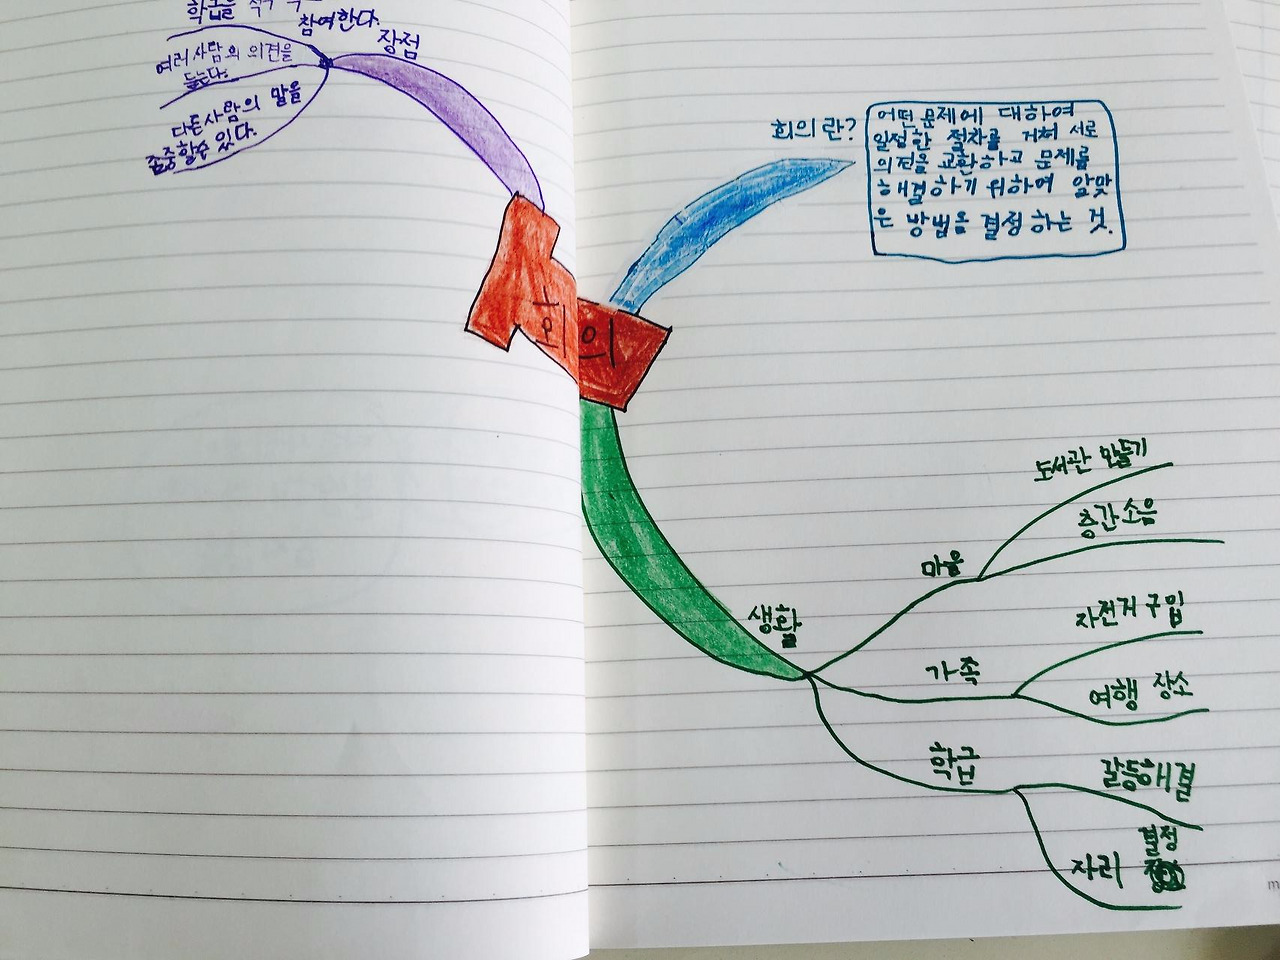 참여한다.
장점
여러사람의 의견을
듣는다.
다른사람의 말을
존중할수 있다.
회의
회의란?
어떤 문제에 대하여
일정한 절차를 거쳐 서로
의견을 교환하고 문제를
해결하기 위하여 알맞
은 방법을 결정하는 것.
생활
마을
도서관 만들기
층간소음
가족
자전거 구입
여행 장소
학급
갈등해결
자리 결정